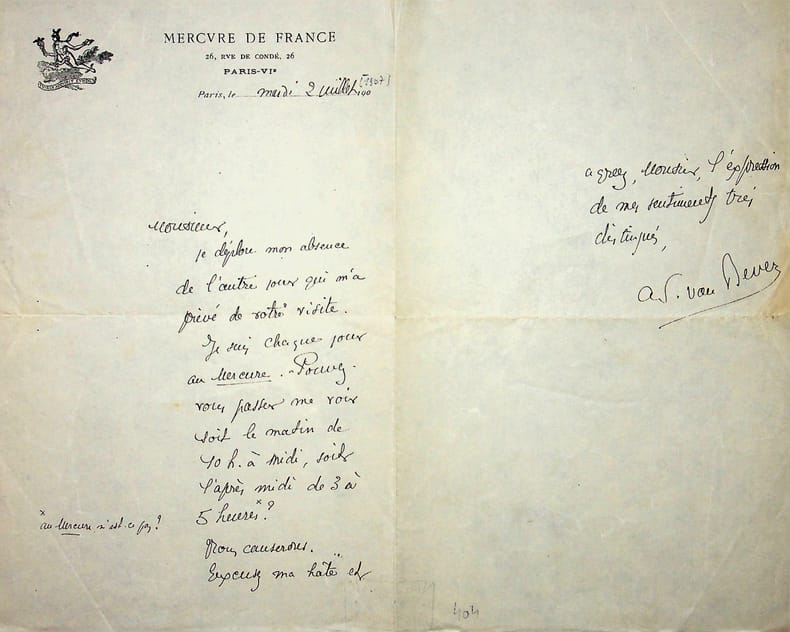 MERCVRE DE FRANCE
26, RVE DE CONDÉ, 26
PARIS-VIe
Paris, le mardi 2 juillet 190 [1907]
Monsieur,
je déplore mon absence
de l'autre jour qui m'a
privé de votre visite.
Je suis chaque jour
au Mercure. Pouvez-
vous passer me voir
soit le matin de
10 h. à midi, soit
l'après midi de 3 à
5 heures x ?
x au Mercure, n'est-ce pas ?
Nous causerons.
Excusez ma hâte et
agréez, Monsieur, l'expression
de mes sentiments très
distingués,
Ad. van Bever
404